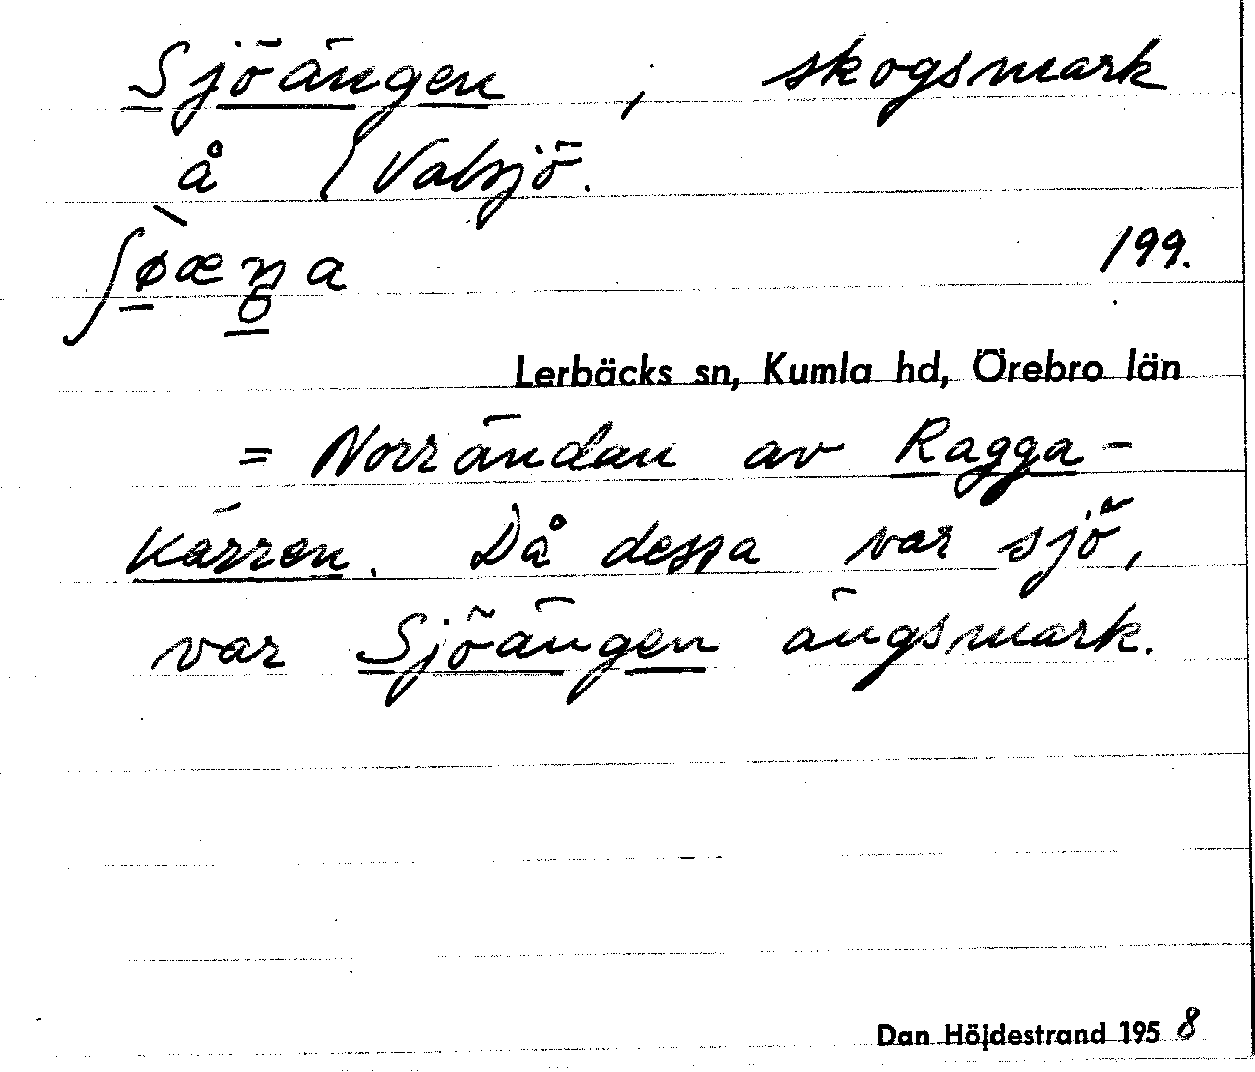 Sjöängen, skogsmark
å { Valsjö.
ʃø̀æŋa 199.
Lerbäcks sn, Kumla hd, Örebro län
= Norrändan av Ragga-
kärren. Då dessa var sjö,
var Sjöängen ängsmark.
Dan Höjdestrand 1958